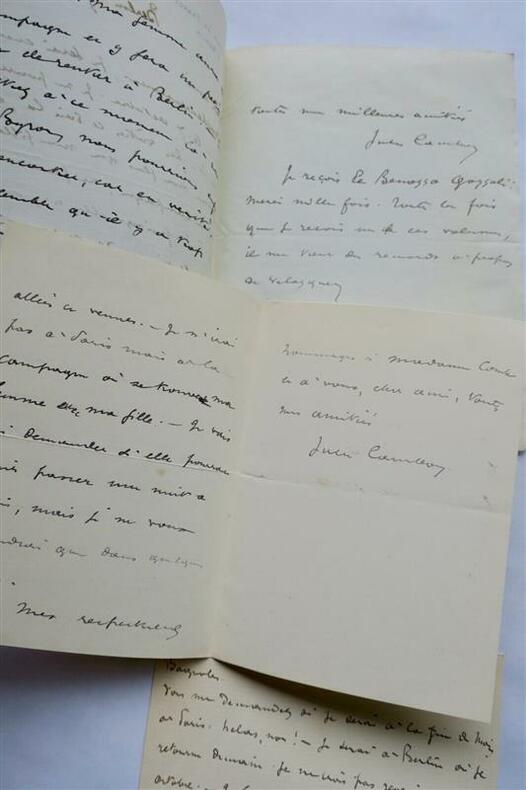 Berlin
ma femme
campagne et y fera un
de rentrer à Berlin
à ce moment là
nous pourrions
rencontrer, car en vérité
semble qu'il y a trop
toutes mes meilleures amitiés
Jules Cambon
Je reçois le Benozzo Gozzoli.
merci mille fois. Toutes les fois
que je reçois un de ces volumes,
il me vient des remords à propos
de Velasquez
alliez à Rennes. – Je n'irai
pas à Paris mais à la
campagne où se trouvent ma
femme et ma fille. – Je vais
demander d'elle
passer une nuit à
mais je ne vous
que dans quelques
Mes respectueux
hommages à madame
et à vous, cher ami, toutes
mes amitiés
Jules Cambon
Bagnoles
Vous me demandez si je serai à la fin de mai
à Paris. hélas, non ! – Je serai à Berlin où je
retourne demain. Je ne crois pas
octobre. –